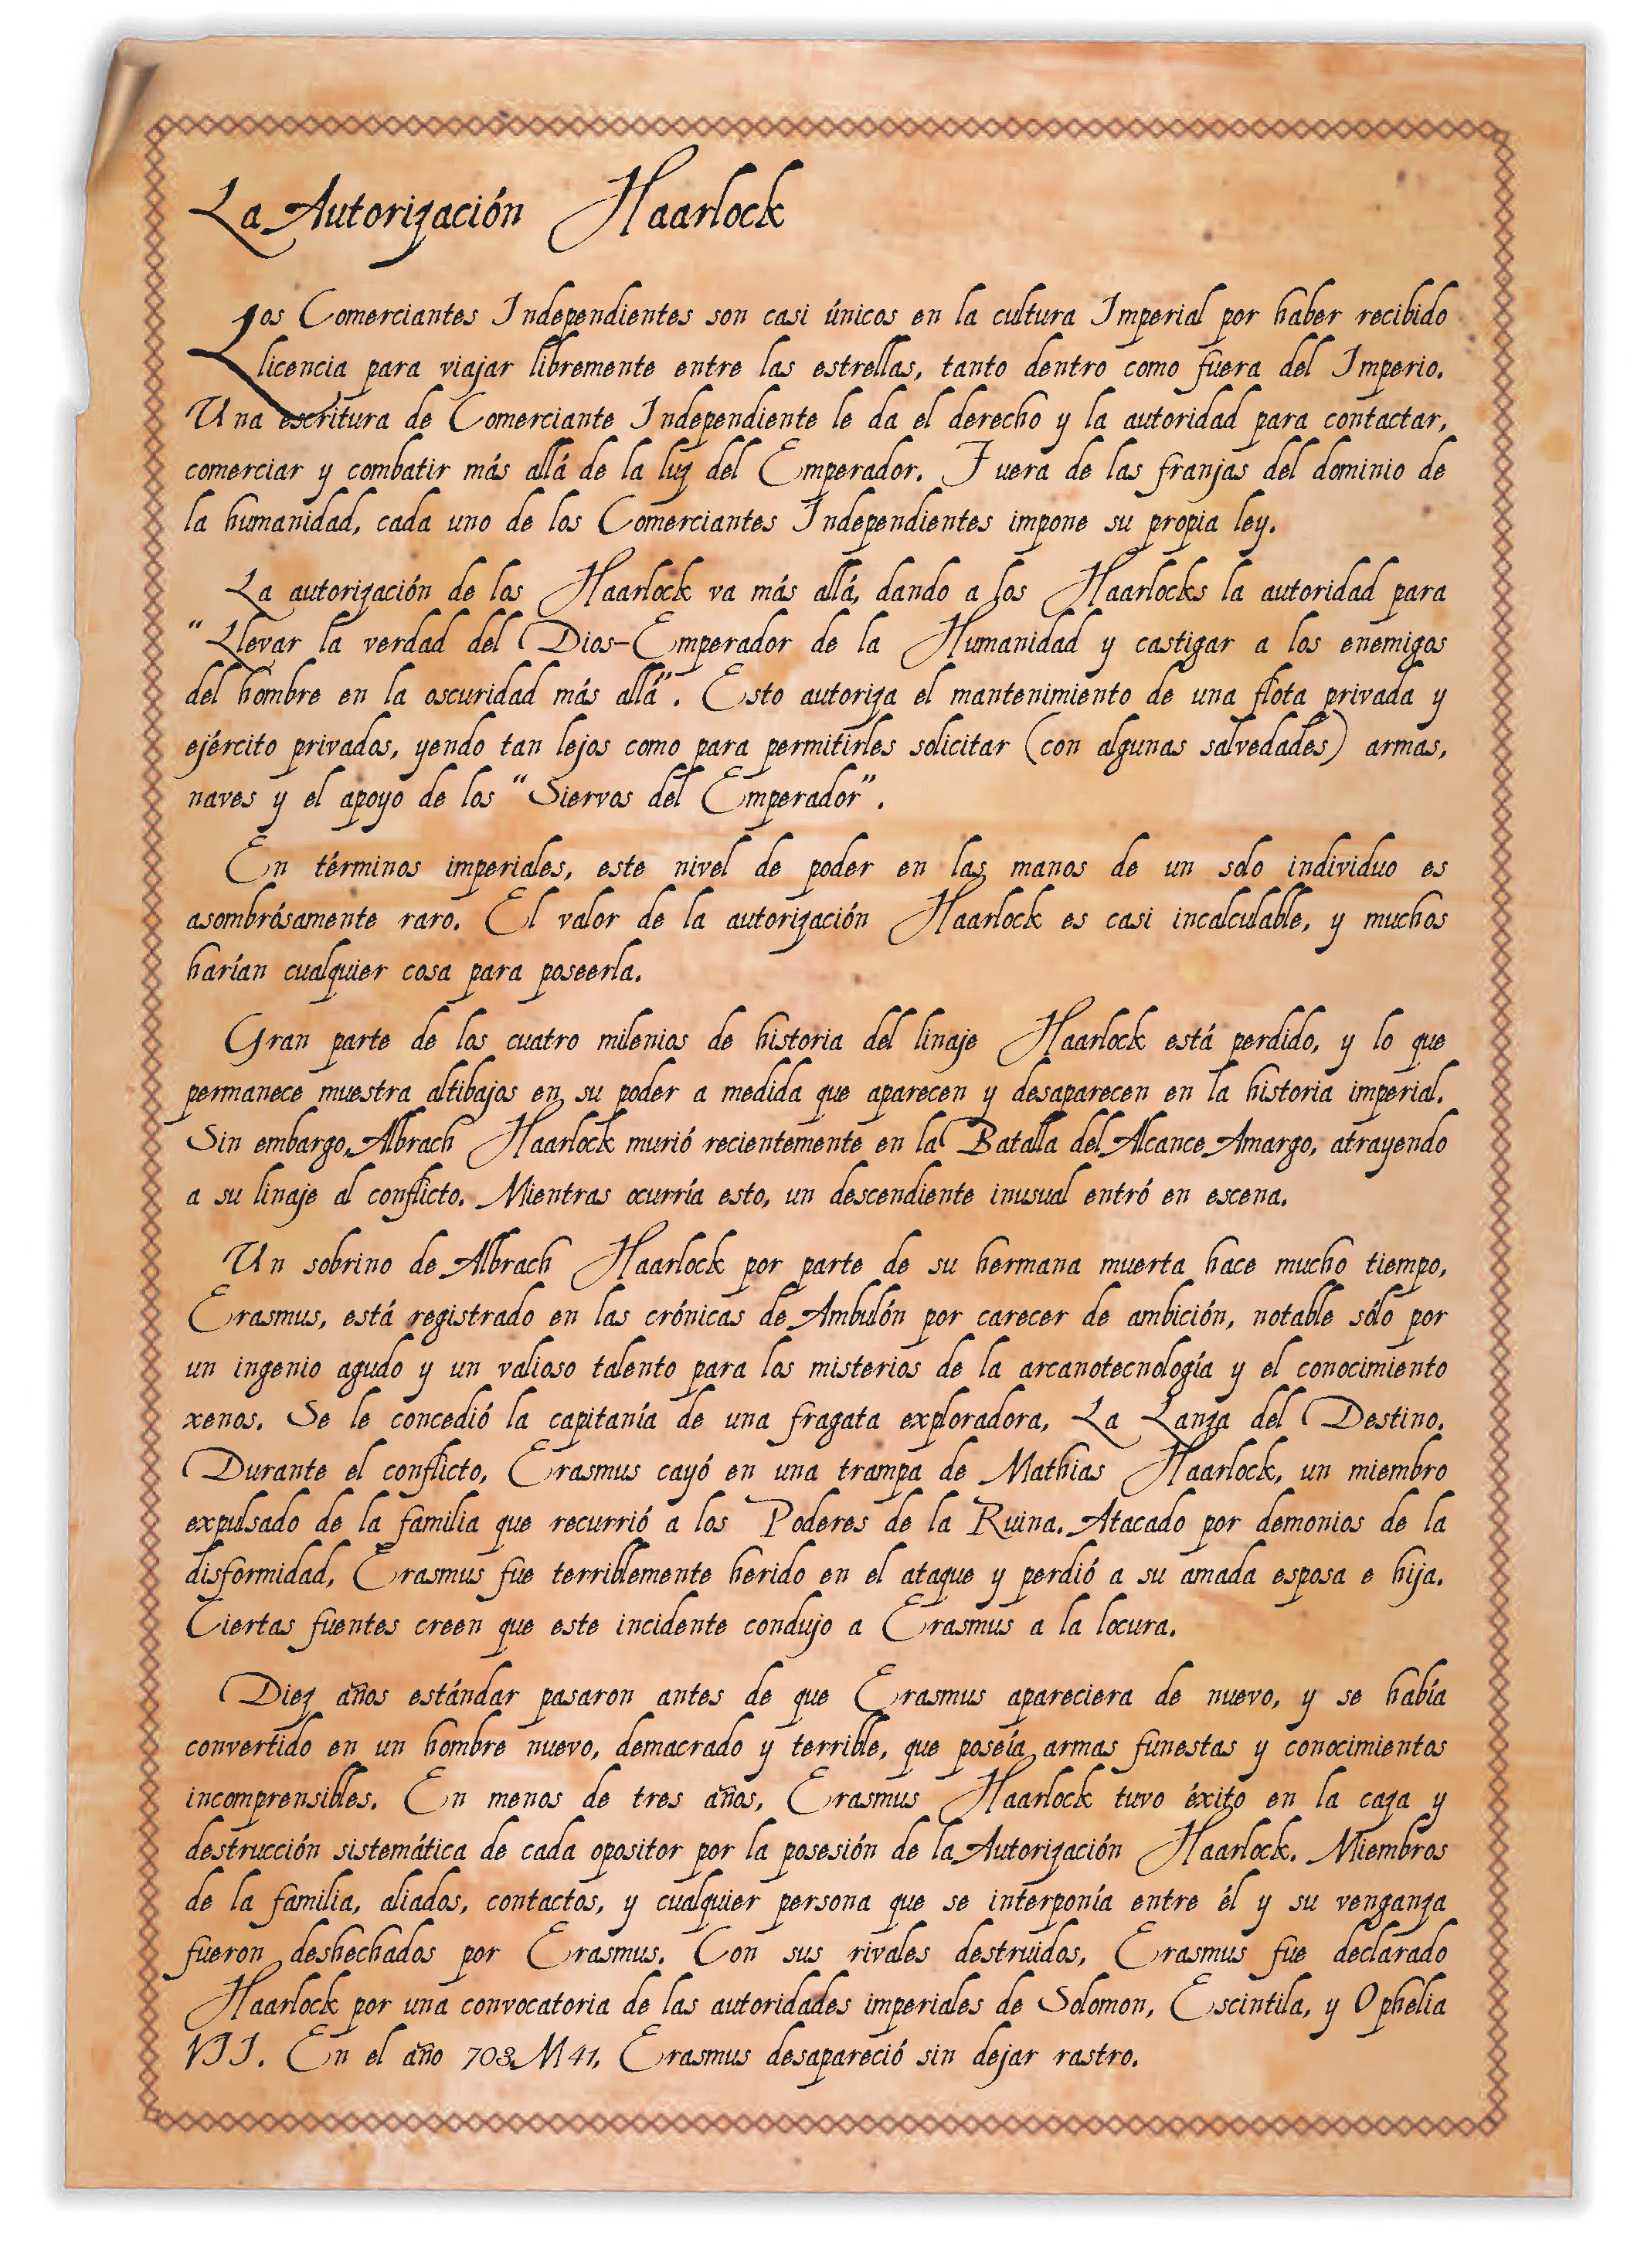 La Autorización Haarlock
Los Comerciantes Independientes son casi únicos en la cultura Imperial por haber recibido
licencia para viajar libremente entre las estrellas, tanto dentro como fuera del Imperio.
Una escritura de Comerciante Independiente le da el derecho y la autoridad para contactar,
comerciar y combatir más allá de la luz del Emperador. Fuera de las franjas del dominio de
la humanidad, cada uno de los Comerciantes Independientes impone su propia ley.
La autorización de los Haarlock va más allá, dando a los Haarlocks la autoridad para
“Llevar la verdad del Dios-Emperador de la Humanidad y castigar a los enemigos
del hombre en la oscuridad más allá”. Esto autoriza el mantenimiento de una flota privada y
ejército privados, yendo tan lejos como para permitirles solicitar (con algunas salvedades) armas,
naves y el apoyo de los “Siervos del Emperador”.
En términos imperiales, este nivel de poder en las manos de un solo individuo es
asombrósamente raro. El valor de la autorización Haarlock es casi incalculable, y muchos
harían cualquier cosa para poseerla.
Gran parte de los cuatro milenios de historia del linaje Haarlock está perdido, y lo que
permanece muestra altibajos en su poder a medida que aparecen y desaparecen en la historia imperial.
Sin embargo, Albrach Haarlock murió recientemente en la Batalla del Alcance Amargo, atrayendo
a su linaje al conflicto. Mientras ocurría esto, un descendiente inusual entró en escena.
Un sobrino de Albrach Haarlock por parte de su hermana muerta hace mucho tiempo,
Erasmus, está registrado en las crónicas de Ambulón por carecer de ambición, notable sólo por
un ingenio agudo y un valioso talento para los misterios de la arcanotecnología y el conocimiento
xenos. Se le concedió la capitanía de una fragata exploradora, La Lanza del Destino.
Durante el conflicto, Erasmus cayó en una trampa de Mathias Haarlock, un miembro
expulsado de la familia que recurrió a los Poderes de la Ruina. Atacado por demonios de la
disformidad, Erasmus fue terriblemente herido en el ataque y perdió a su amada esposa e hija.
Ciertas fuentes creen que este incidente condujo a Erasmus a la locura.
Diez años estándar pasaron antes de que Erasmus apareciera de nuevo, y se había
convertido en un hombre nuevo, demacrado y terrible, que poseía armas funestas y conocimientos
incomprensibles. En menos de tres años, Erasmus Haarlock tuvo éxito en la caza y
destrucción sistemática de cada opositor por la posesión de la Autorización Haarlock. Miembros
de la familia, aliados, contactos, y cualquier persona que se interponía entre él y su venganza
fueron deshechados por Erasmus. Con sus rivales destruidos, Erasmus fue declarado
Haarlock por una convocatoria de las autoridades imperiales de Solomon, Escintila, y Ophelia
VII. En el año 703.M41, Erasmus desapareció sin dejar rastro.